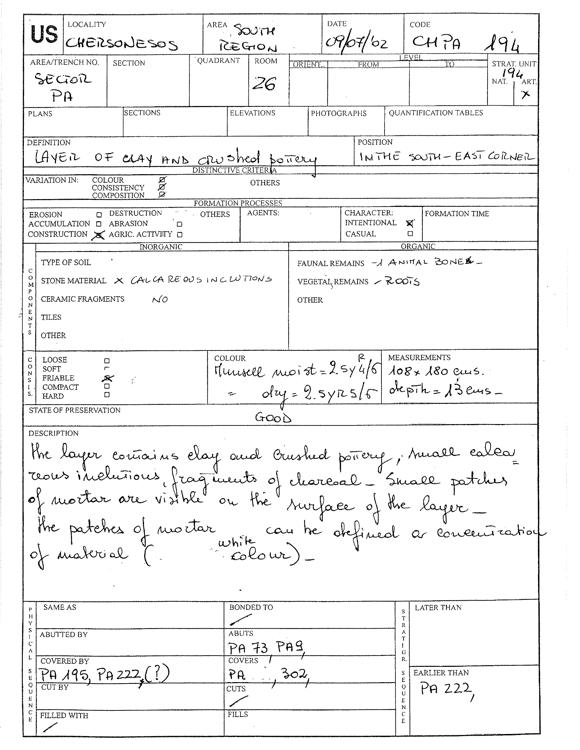 US
LOCALITY
CHERSONESOS
AREA SOUTH
REGION
DATE
09/07/02
CODE
CHPA 194
AREA/TRENCH NO.
SECTOR
PA
SECTION
QUADRANT
ROOM
26
LEVEL
ORIENT. FROM TO
STRAT. UNIT
194
NAT. ART.
x
PLANS
SECTIONS
ELEVATIONS
PHOTOGRAPHS
QUANTIFICATION TABLES
DEFINITION
LAYER OF CLAY AND crushed pottery
POSITION
IN THE SOUTH-EAST CORNER
DISTINCTIVE CRITERIA
VARIATION IN: COLOUR
CONSISTENCY
COMPOSITION
OTHERS
FORMATION PROCESSES
EROSION DESTRUCTION OTHERS
ACCUMULATION ABRASION
CONSTRUCTION AGRIC. ACTIVITY
AGENTS:
CHARACTER:
INTENTIONAL
CASUAL
FORMATION TIME
INORGANIC
ORGANIC
COMPONENTS
TYPE OF SOIL
STONE MATERIAL x CALCAREOUS INCLUTIONS
CERAMIC FRAGMENTS NO
TILES
OTHER
FAUNAL REMAINS - 1 ANIMAL BONE -
VEGETAL REMAINS - ROOTS
OTHER
CONSIS.
LOOSE
SOFT
FRIABLE
COMPACT
HARD
COLOUR
Munsell moist = 2.5 Y R 4/6
= dry = 2.5 YR 5/6
MEASUREMENTS
108 x 180 cms.
depth = 13 cms -
STATE OF PRESERVATION
GOOD
DESCRIPTION
the layer contains clay and crushed pottery, small calca=
reous inclutions, fragments of charcoal - Small patches
of mortar are visible on the surface of the layer -
the patches of mortar can be defined as concentration
of material (white colour) -
PHYSICAL SEQUENCE
SAME AS
BONDED TO
ABUTTED BY
ABUTS
PA 73 PA9,
COVERED BY
PA 195, PA 222, (?)
COVERS
PA 302,
CUT BY
CUTS
FILLED WITH
FILLS
STRATIGR. SEQUENCE
LATER THAN
EARLIER THAN
PA 222,